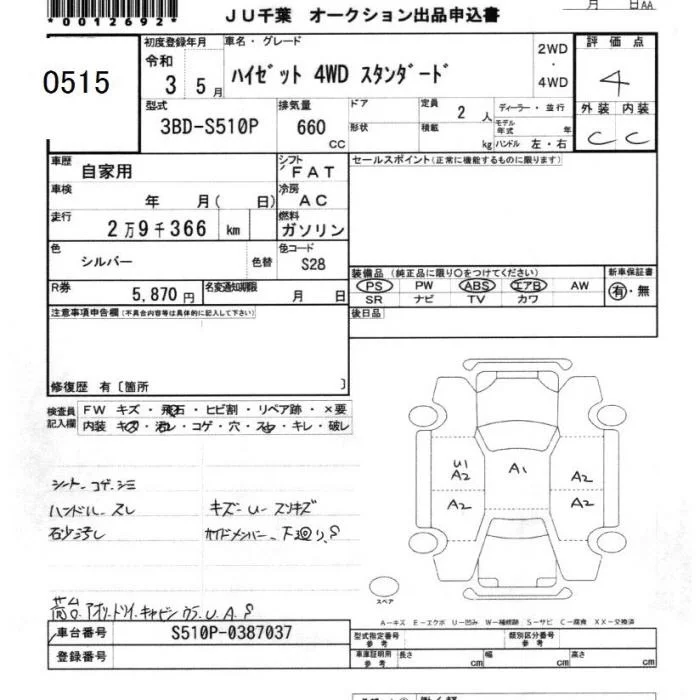 *0012692*
月 日AA
JU千葉 オークション出品申込書
0515
初度登録年月
令和
3 5月
車名・グレード
ハイゼット 4WD スタンダード
2WD
・
4WD
評価点
4
型式
3BD-S510P
排気量
660
CC
ドア
形状
定員
2 人
積載
kg
ディーラー・並行
モデル年式 年
ハンドル 左・右
外装 内装
C C
車歴
自家用
シフト
FAT
セールスポイント(正常に機能するものに限ります)
車検
年 月( 日)
冷房
AC
走行
2万9千366 km
燃料
ガソリン
色
シルバー
色替
色コード
S28
装備品 (純正品に限り○をつけてください)
PS PW ABS エアB AW
SR ナビ TV カワ
新車保証書
有・無
R券
5,870円
名変通知期限
月 日
後日品
注意事項申告欄(不具合内容等は具体的に記入して下さい)
修復歴 有〔箇所 〕
検査員記入欄
FW キズ・飛石・ヒビ割・リペア跡・×要
内装 キズ・汚レ・コゲ・穴・スレ・キレ・破レ
シート コゲ シミ
ハンドル スレ
キズ U スリキズ
石少汚し
サイドメンバー 下廻り S
荷台 アオリ トリイ キャビンウラ U A S
U1
A2
A1
A2
A2
A2
スペア
A-キズ E-エクボ U-凹み W-補修跡 S-サビ C-腐食 XX-交換済
車台番号 S510P-0387037
登録番号
型式指定番号
参考
類別区分番号
参考
車庫証明用
参考
長さ cm 幅 cm 高さ cm